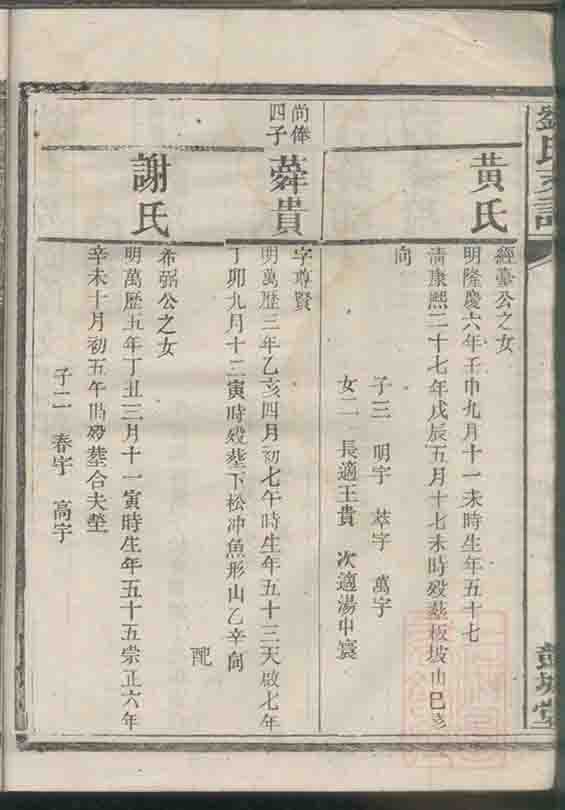 劉氏支譜
彭城堂
黃氏
經臺公之女
明隆慶六年壬申九月十一未時生年五十七
清康熙二十七年戊辰五月十七未時歿塟板坡山巳亥
向
子三　明字　萃字　萬字
女二　長適王貴　次適湯中寰
尚俸
四子
蕣貴
字尊賢
明萬歷三年乙亥四月初七午時生年五十三天啟七年
丁卯九月十二寅時歿塟下松冲魚形山乙辛向
配
謝氏
希弼公之女
明萬歷五年丁丑三月十一寅時生年五十五崇正六年
辛未十月初五午時歿塟合夫塋
子二　春字　高字